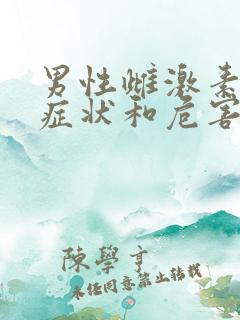 男性雌激素
症状和危害
陳學亨
未经同意禁止转载